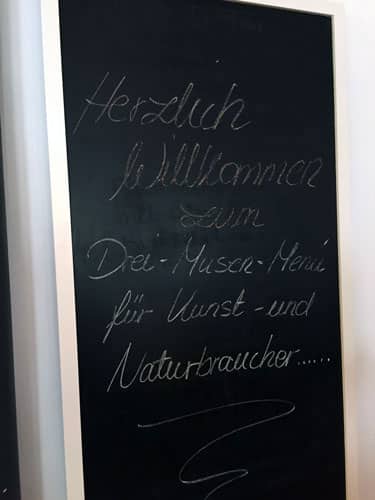 Herzlich
Willkommen
zum
Drei-Musen-Menü
für Kunst-und
Naturbraucher......